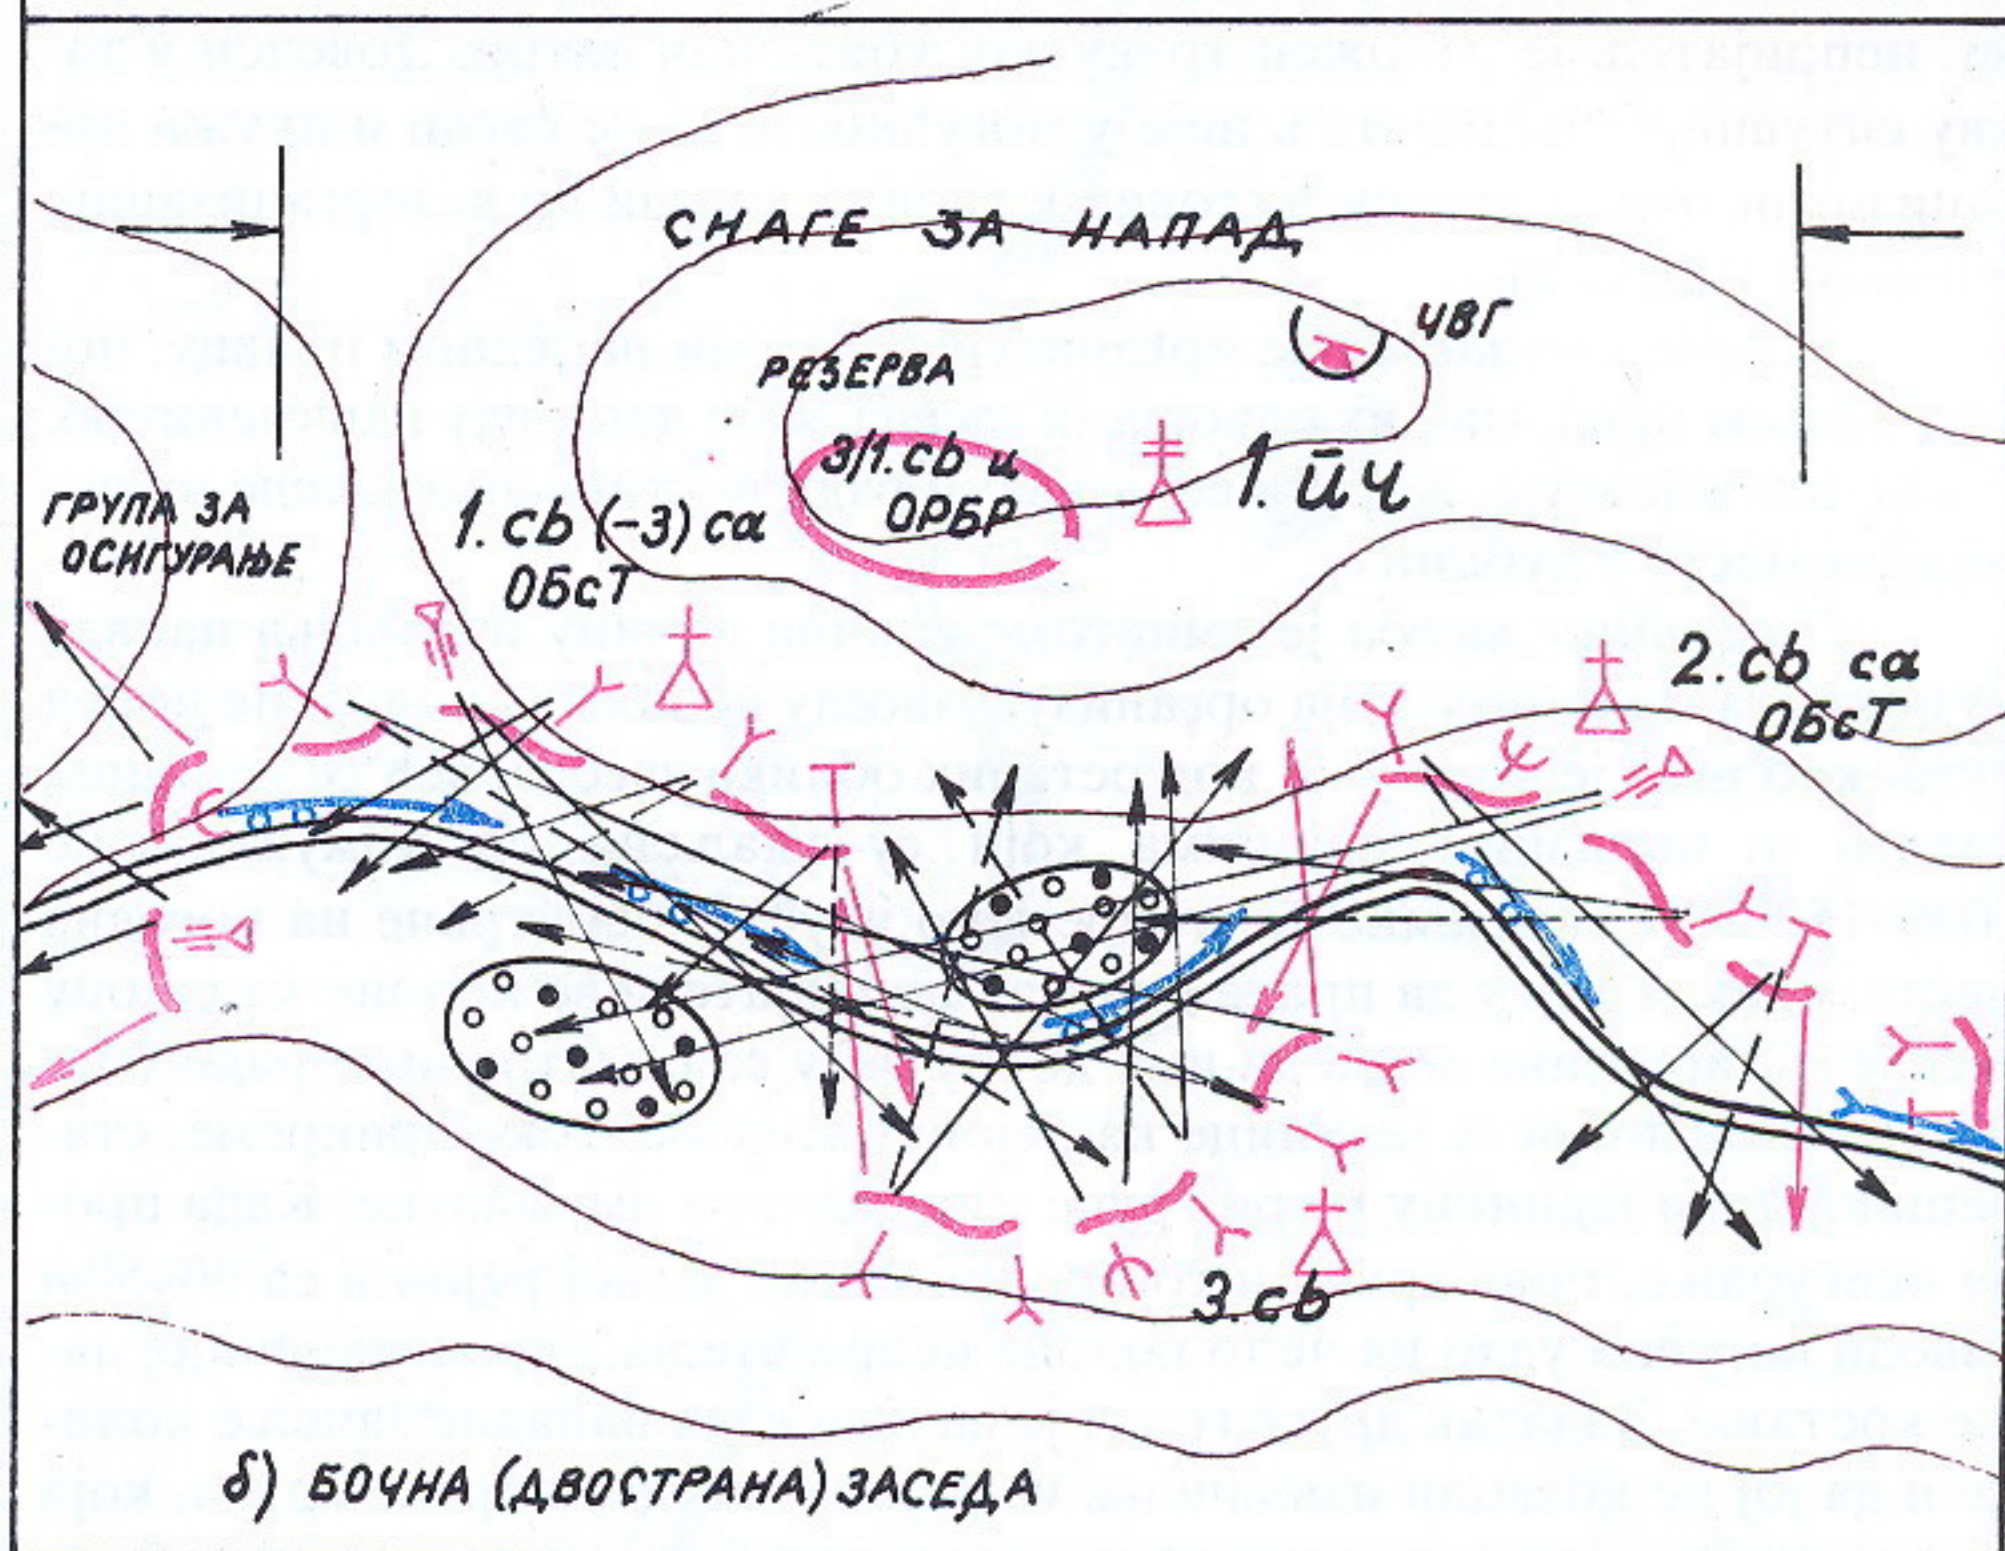 СНАГЕ ЗА НАПАД
ЧВГ
РЕЗЕРВА
3/1. св и
ОРБР
1. ӣч
ГРУПА ЗА
ОСИГУРАЊЕ
1. св (-3) са
ОБсТ
2. св са
ОБсТ
3. св
б) БОЧНА (ДВОСТРАНА) ЗАСЕДА